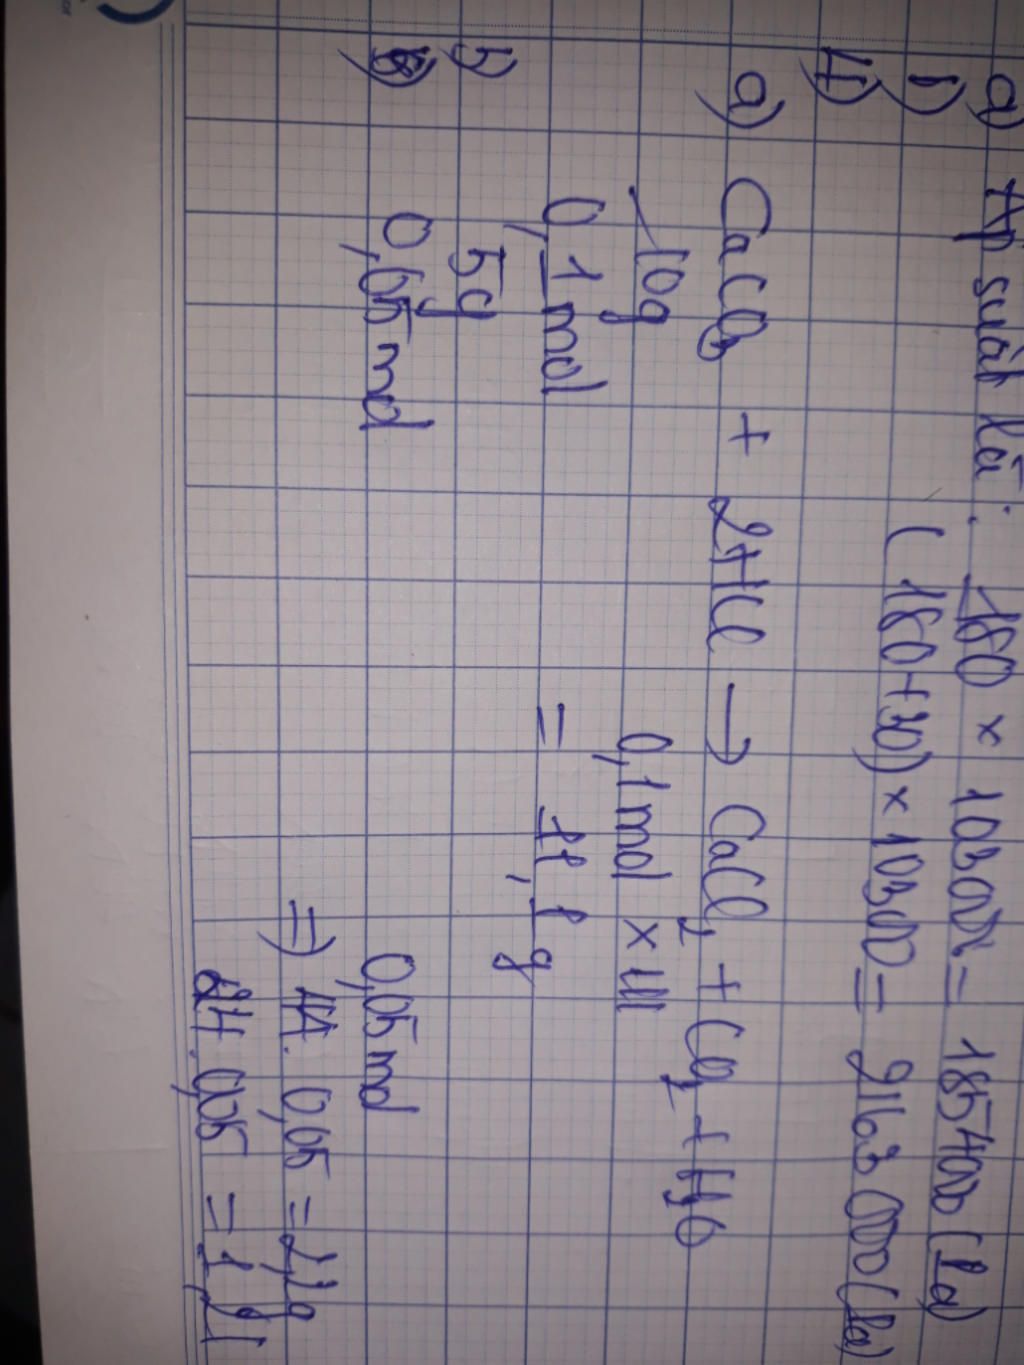 a) Áp suất là: 180 × 10300 = 1854000 (Pa)
b) (180+30) × 10300 = 2163000 (Pa)
4)
a) CaCO₃ + 2HCl → CaCl₂ + CO₂ + H₂O
10g 0,1 mol × 111
0,1 mol = 11,1 g
b) 5g
0,05 mol 0,05 mol
⇒ 44. 0,05 = 2,2g
24. 0,05 = 1,2l